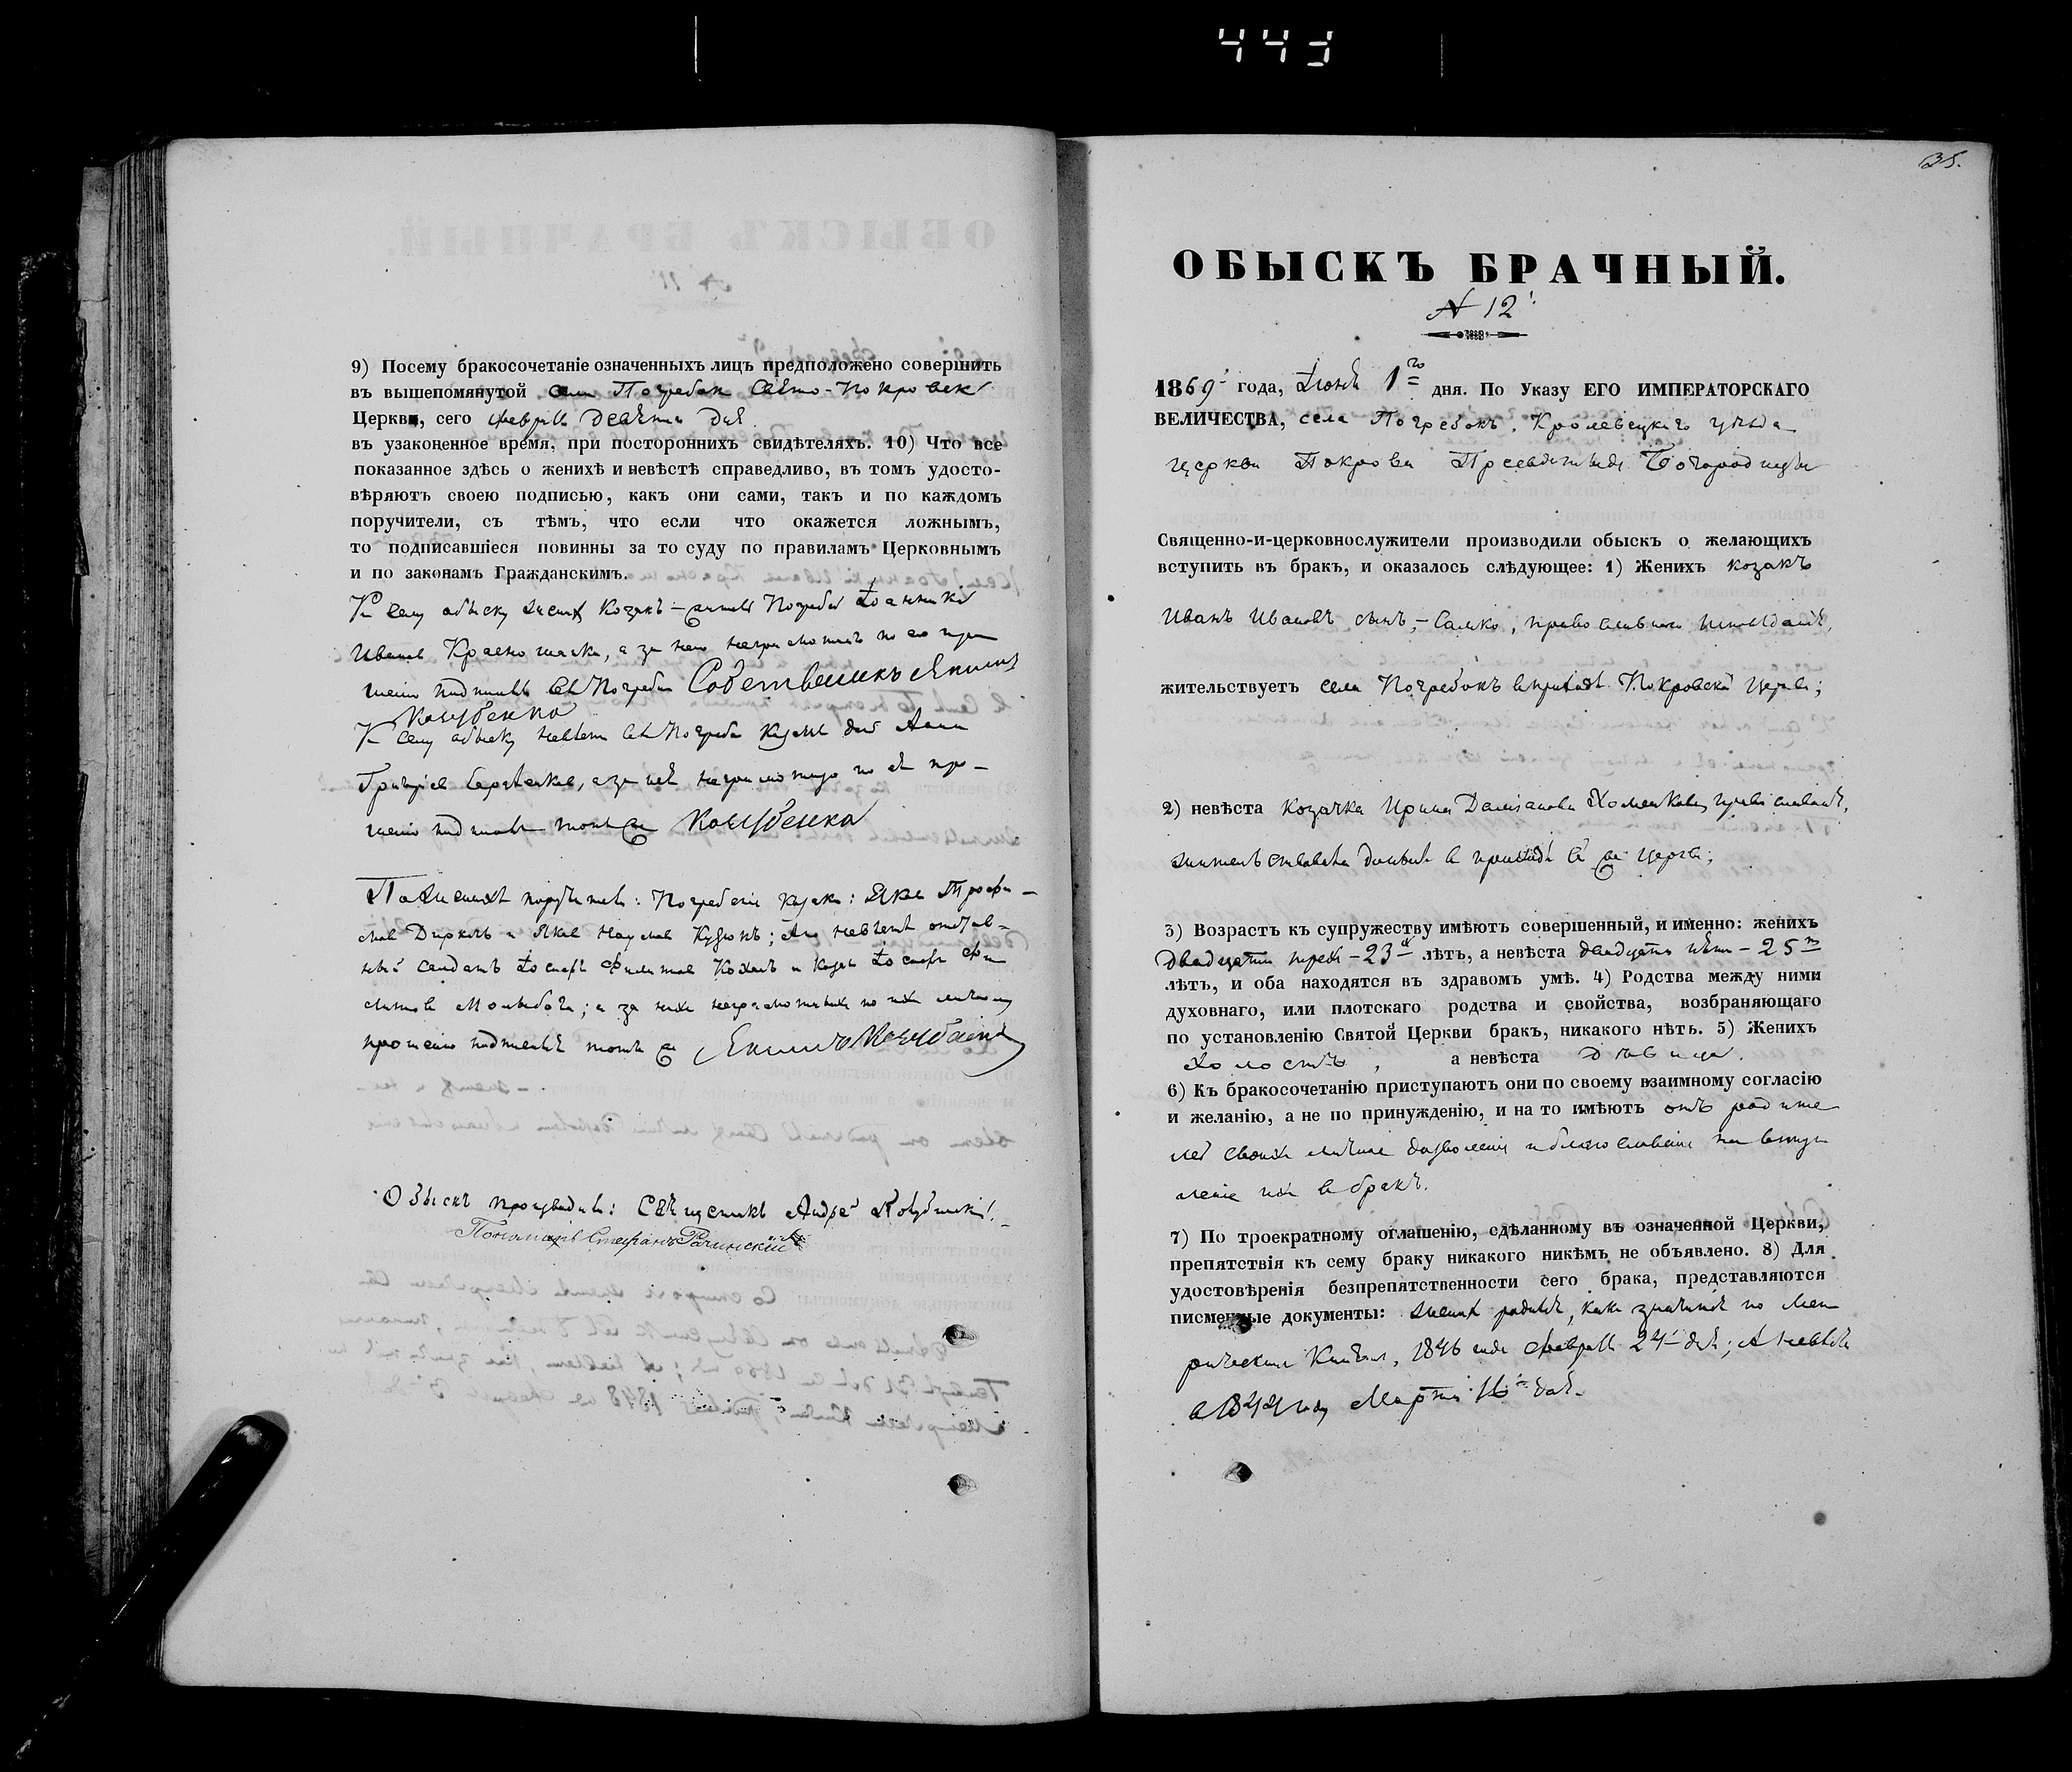 443
9) Посему бракосочетаніе означенныхъ лицъ предположено совершить
въ вышепомянутой Погребок Свято-Покровск
Церкви, сего февраля девятаго дня
въ узаконенное время, при постороннихъ свидѣтеляхъ. 10) Что все
показанное здѣсь о женихѣ и невѣстѣ справедливо, въ томъ удосто-
вѣряютъ своею подписью, какъ они сами, такъ и по каждомъ
поручители, съ тѣмъ, что если что окажется ложнымъ,
то подписавшіеся повинны за то суду по правиламъ Церковнымъ
и по законамъ Гражданскимъ.
К сему обыску женихъ Козакъ
Иванъ, а за него неграмотнаго по его про
шенію подписалъ Погребок Собственникъ Якимъ
Кочубенко
К сему обыску невѣста Погребок Анна
Григорія, а за неё неграмотную по её про-
шенію подписалъ тотъ же Кочубенко
По женихѣ поручители: Яковъ Трофи-
мовъ и Яковъ Наумовъ; По невѣстѣ отстав-
ный солдатъ Іосифъ Филиповъ и Козакъ Іосифъ Фи
липовъ; а за нихъ неграмотныхъ по ихъ личному
прошенію подписалъ тотъ же Якимъ Кочубенко
Обыскъ производили: Священикъ Андрей
Пономарь Стефанъ Рачинскій
35.
ОБЫСКЪ БРАЧНЫЙ.
N 12
1869 года, Іюня 1го дня. По Указу ЕГО ИМПЕРАТОРСКАГО
ВЕЛИЧЕСТВА, села Погребокъ, Кролевецкаго уѣзда
церкви Покрова Пресвятыя Богородицы
Священно-и-церковнослужители производили обыскъ о желающихъ
вступить въ бракъ, и оказалось слѣдующее: 1) Женихъ козакъ
Иванъ Ивановъ сынъ, – Салко, православнаго исповѣданія,
жительствуетъ села Погребокъ въ приходѣ Покровской Церкви;
2) невѣста козачка Ирина Даміанова Хоменкова, православная,
жительствовала донынѣ в приходѣ той же церкви;
3) Возрастъ къ супружеству имѣютъ совершенный, и именно: женихъ
двадцати трехъ – 23х лѣтъ, а невѣста двадцати пяти – 25ти
лѣтъ, и оба находятся въ здравомъ умѣ. 4) Родства между ними
духовнаго, или плотскаго родства и свойства, возбраняющаго
по установленію Святой Церкви бракъ, никакого нѣтъ. 5) Женихъ
холостъ, а невѣста дѣвица.
6) Къ бракосочетанію приступаютъ они по своему взаимному согласію
и желанію, а не по принужденію, и на то имѣютъ отъ родите
лей своихъ личное дозволеніе и благословеніе на вступ
леніе ихъ в бракъ.
7) По троекратному оглашенію, сдѣланному въ означенной Церкви,
препятствія къ сему браку никакого никѣмъ не объявлено. 8) Для
удостовѣренія безпрепятственности сего брака, представляются
писменные документы: женихъ родился, какъ значится по Мет
рическимъ Книгамъ, 1846 года февраля 24 дня; А невѣста
в 1844 году Марта 16 дня.